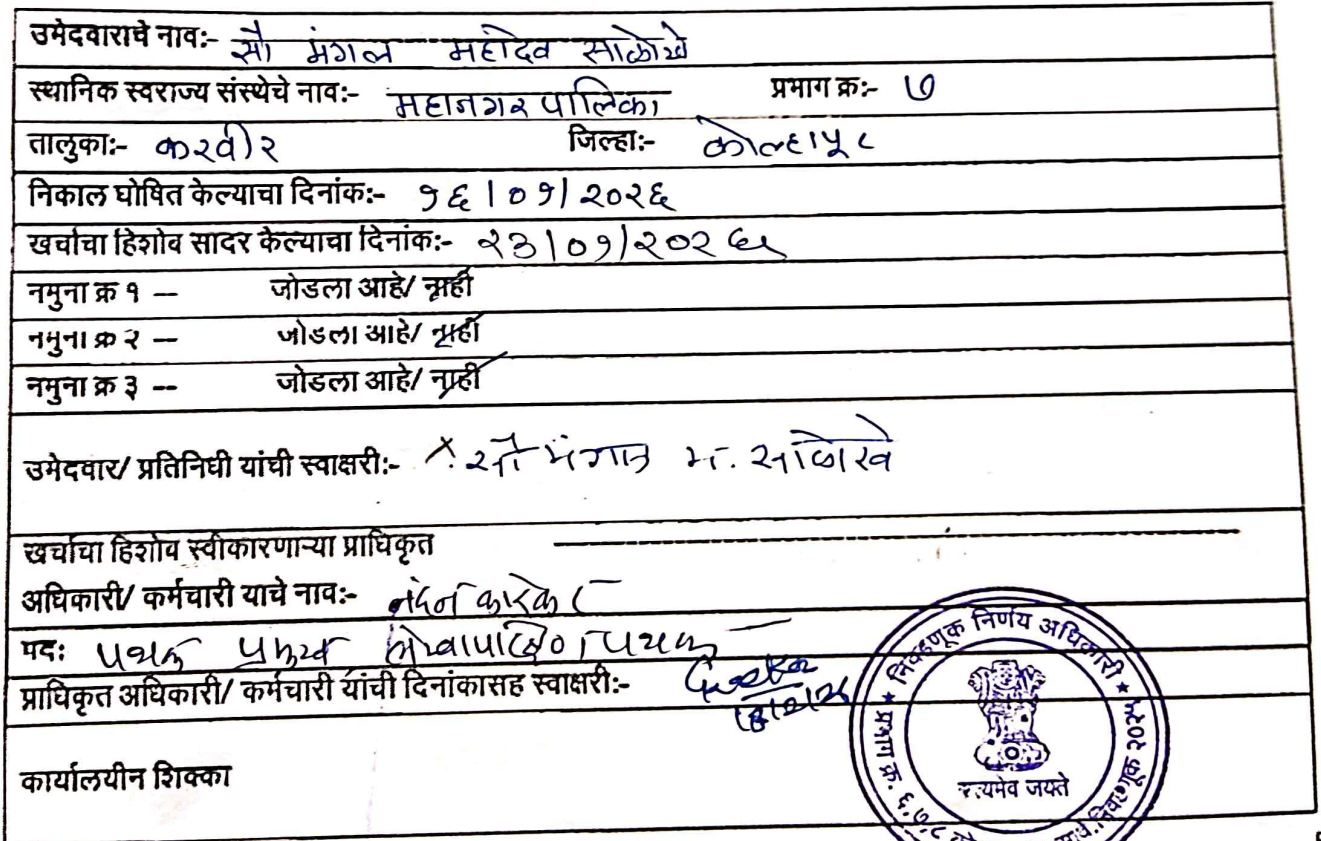 उमेदवाराचे नाव:- सौ मंगल महादेव साळोखे
स्थानिक स्वराज्य संस्थेचे नाव:- महानगरपालिका प्रभाग क्र:- ७
तालुका:- करवीर जिल्हा:- कोल्हापूर
निकाल घोषित केल्याचा दिनांक:- १६/०१/२०२६
खर्चाचा हिशोब सादर केल्याचा दिनांक:- २३/०१/२०२६
नमुना क्र १ -- जोडला आहे/ नाही
नमुना क्र २ -- जोडला आहे/ नाही
नमुना क्र ३ -- जोडला आहे/ नाही
उमेदवार/ प्रतिनिधी यांची स्वाक्षरी:- सौ मंगल म. साळोखे
खर्चाचा हिशोब स्वीकारणाऱ्या प्राधिकृत
अधिकारी/ कर्मचारी याचे नाव:- नंदन कारेकर
पदः पथक प्रमुख लेखापरिक्षण पथक
प्राधिकृत अधिकारी/ कर्मचारी यांची दिनांकासह स्वाक्षरी:-
कार्यालयीन शिक्का
निवडणूक निर्णय अधिकारी
प्रभाग क्र. ६,७,८
निवडणूक २०२५
सत्यमेव जयते